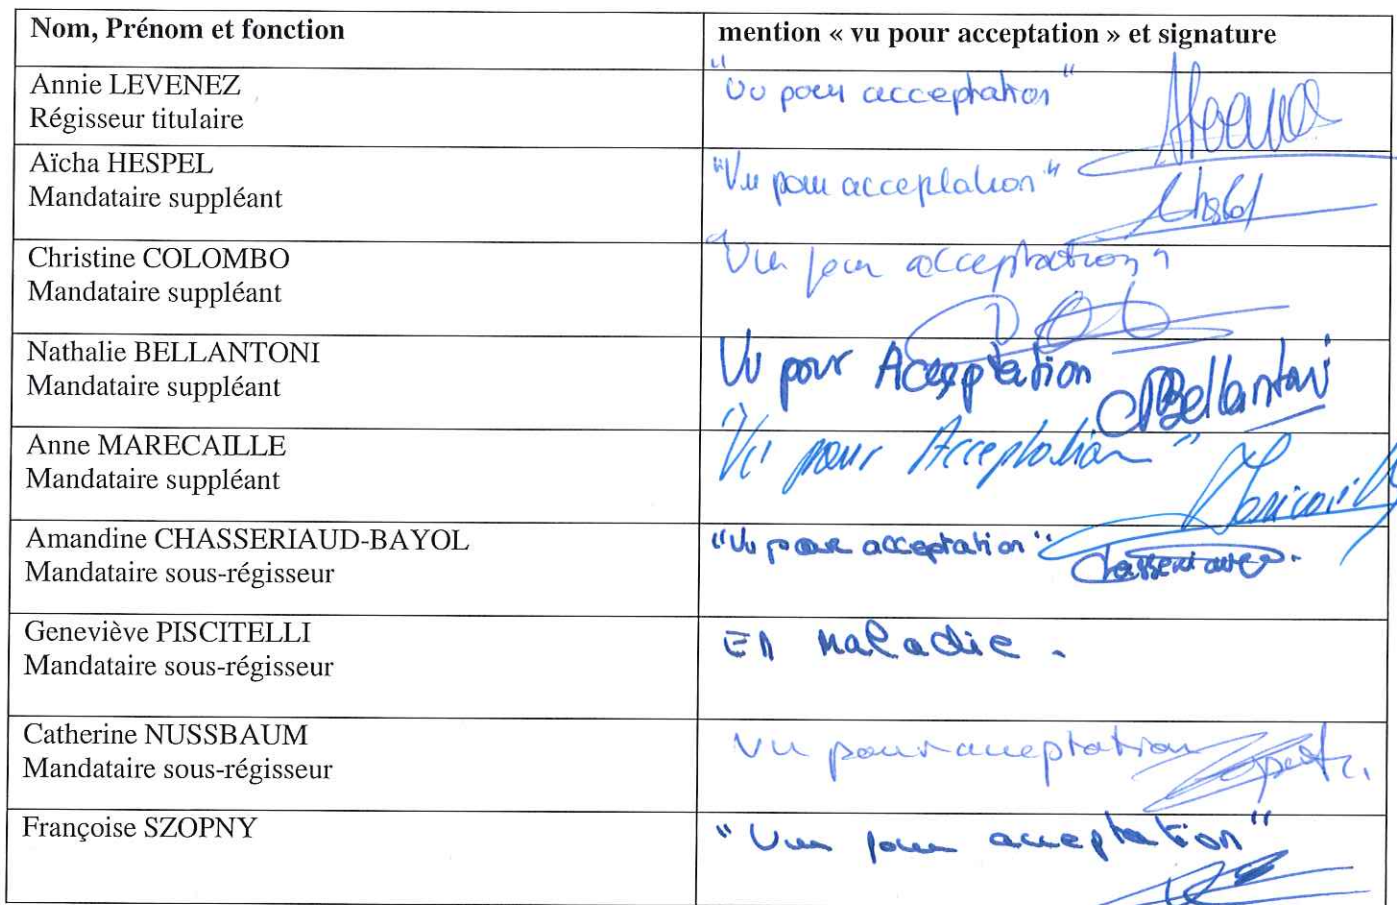 Nom, Prénom et fonction
mention « vu pour acceptation » et signature
Annie LEVENEZ
Régisseur titulaire
"Vu pour acceptation"
Aïcha HESPEL
Mandataire suppléant
"Vu pour acceptation"
Christine COLOMBO
Mandataire suppléant
"Vu pour acceptation"
Nathalie BELLANTONI
Mandataire suppléant
Vu pour Acceptation
NBellantoni
Anne MARECAILLE
Mandataire suppléant
"Vu pour Acceptation"
Amandine CHASSERIAUD-BAYOL
Mandataire sous-régisseur
"Vu pour acceptation"
Geneviève PISCITELLI
Mandataire sous-régisseur
En maladie.
Catherine NUSSBAUM
Mandataire sous-régisseur
Vu pour acceptation
Françoise SZOPNY
"Vu pour acceptation"